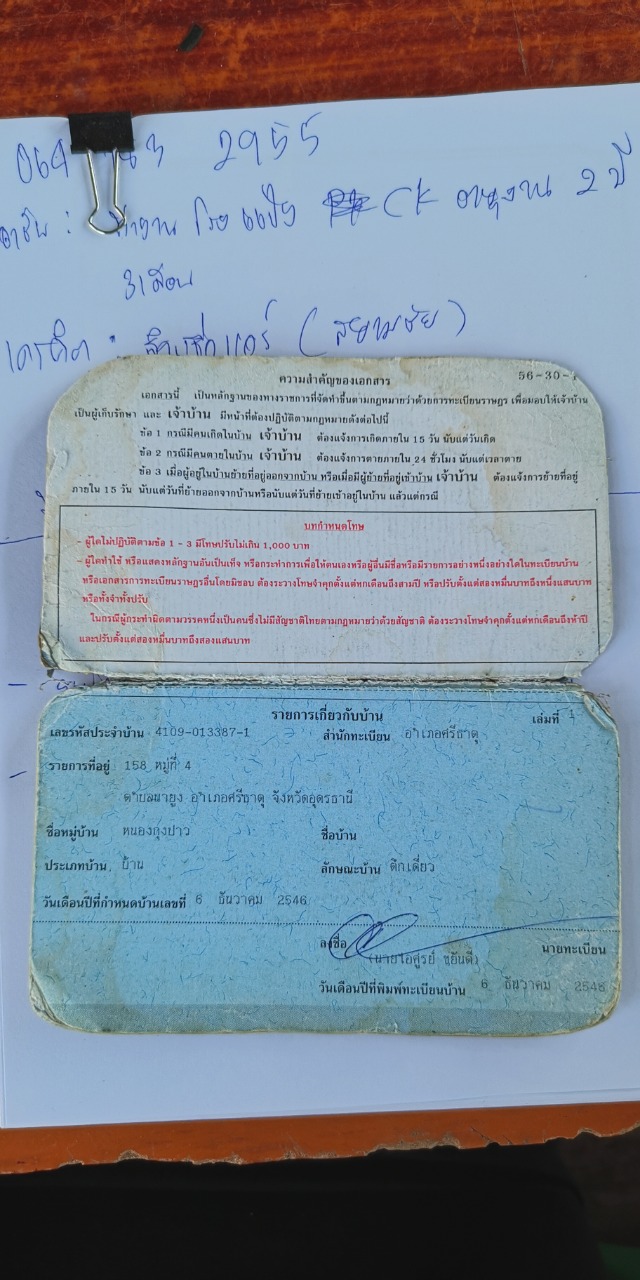 064 3 2955
CK อายุงาน 2 ปี
3 เดือน
(สยามชัย)
ความสำคัญของเอกสาร 56-30-
เอกสารนี้ เป็นหลักฐานของทางราชการที่จัดทำขึ้นตามกฎหมายว่าด้วยการทะเบียนราษฎร เพื่อมอบให้เจ้าบ้าน
เป็นผู้เก็บรักษา และ เจ้าบ้าน มีหน้าที่ต้องปฏิบัติตามกฎหมายดังต่อไปนี้
ข้อ 1 กรณีมีคนเกิดในบ้าน เจ้าบ้าน ต้องแจ้งการเกิดภายใน 15 วัน นับแต่วันเกิด
ข้อ 2 กรณีมีคนตายในบ้าน เจ้าบ้าน ต้องแจ้งการตายภายใน 24 ชั่วโมง นับแต่เวลาตาย
ข้อ 3 เมื่อผู้อยู่ในบ้านย้ายที่อยู่ออกจากบ้าน หรือเมื่อมีผู้ย้ายที่อยู่เข้าบ้าน เจ้าบ้าน ต้องแจ้งการย้ายที่อยู่
ภายใน 15 วัน นับแต่วันที่ย้ายออกจากบ้านหรือนับแต่วันที่ย้ายเข้าอยู่ในบ้าน แล้วแต่กรณี
บทกำหนดโทษ
- ผู้ใดไม่ปฏิบัติตามข้อ 1 - 3 มีโทษปรับไม่เกิน 1,000 บาท
- ผู้ใดทำ ใช้ หรือแสดงหลักฐานอันเป็นเท็จ หรือกระทำการเพื่อให้ตนเองหรือผู้อื่นมีชื่อหรือมีรายการอย่างหนึ่งอย่างใดในทะเบียนบ้าน
หรือเอกสารการทะเบียนราษฎรอื่นโดยมิชอบ ต้องระวางโทษจำคุกตั้งแต่หกเดือนถึงสามปี หรือปรับตั้งแต่สองหมื่นบาทถึงหนึ่งแสนบาท
หรือทั้งจำทั้งปรับ
ในกรณีผู้กระทำผิดตามวรรคหนึ่งเป็นคนซึ่งไม่มีสัญชาติไทยตามกฎหมายว่าด้วยสัญชาติ ต้องระวางโทษจำคุกตั้งแต่หกเดือนถึงห้าปี
และปรับตั้งแต่สองหมื่นบาทถึงสองแสนบาท
รายการเกี่ยวกับบ้าน เล่มที่ 1
เลขรหัสประจำบ้าน 4109-013387-1 สำนักทะเบียน อำเภอศรีธาตุ
รายการที่อยู่ 158 หมู่ที่ 4
ตำบลนายูง อำเภอศรีธาตุ จังหวัดอุดรธานี
ชื่อหมู่บ้าน หนองกุงปาว ชื่อบ้าน
ประเภทบ้าน บ้าน ลักษณะบ้าน ตึกเดี่ยว
วันเดือนปีที่กำหนดบ้านเลขที่ 6 ธันวาคม 2546
ลงชื่อ นายทะเบียน
วันเดือนปีที่พิมพ์ทะเบียนบ้าน 6 ธันวาคม 2546